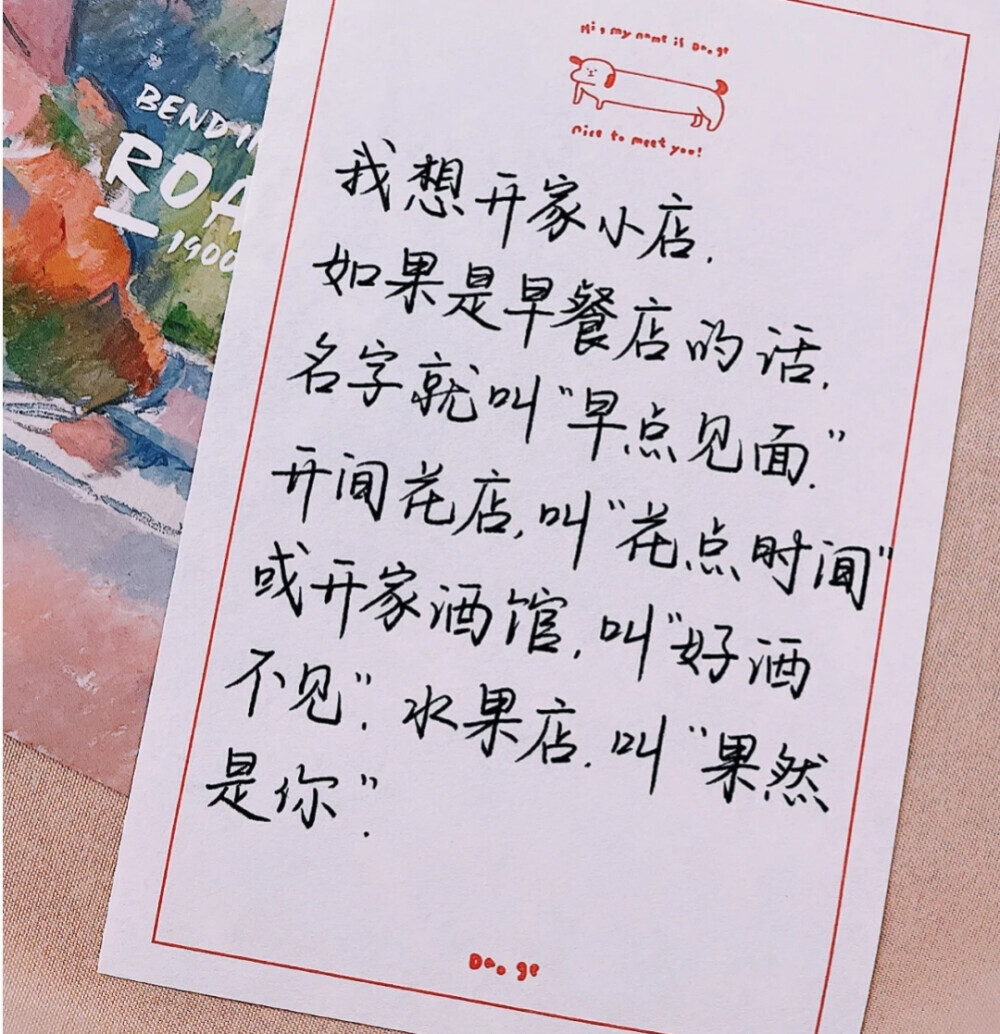 BENDI
ROA
1900
Hi, my name is Dao.ge
nice to meet you!
我想开家小店.
如果是早餐店的话,
名字就叫"早点见面".
开间花店,叫"花点时间"
或开家酒馆,叫"好酒
不见".水果店,叫"果然
是你".
Dao.ge